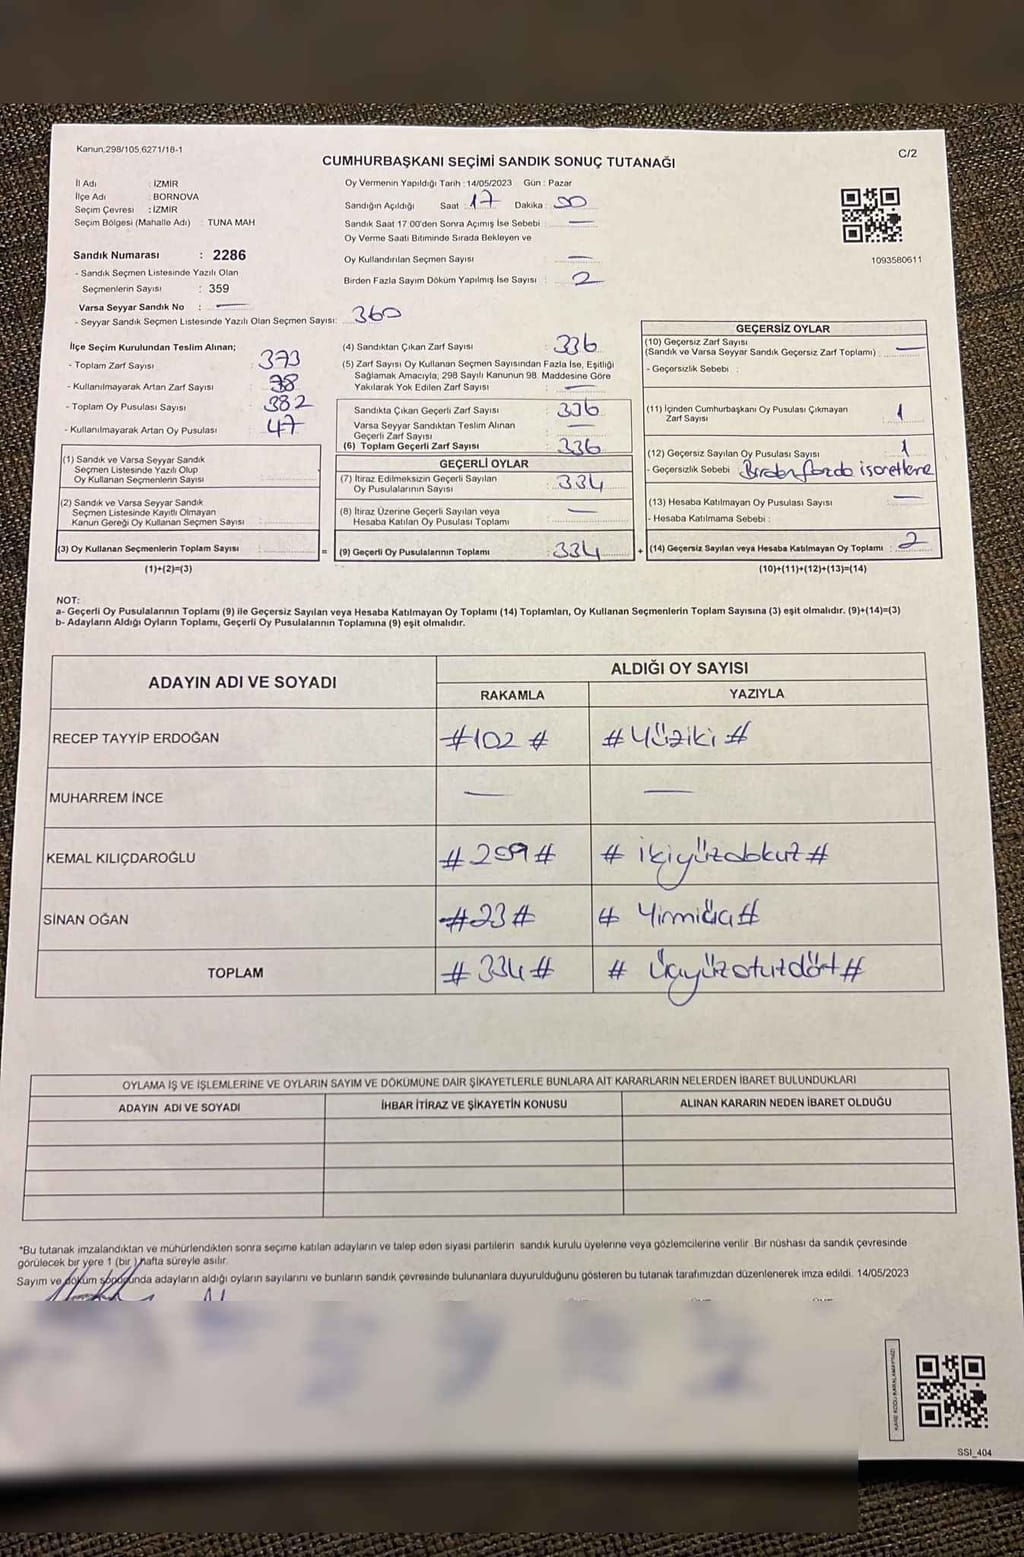 Kanun.298/105,6271/18-1
C/2
CUMHURBAŞKANI SEÇİMİ SANDIK SONUÇ TUTANAĞI
İl Adı : İZMİR
İlçe Adı : BORNOVA
Seçim Çevresi : İZMİR
Seçim Bölgesi (Mahalle Adı) : TUNA MAH
Sandık Numarası : 2286
- Sandık Seçmen Listesinde Yazılı Olan
Seçmenlerin Sayısı : 359
Varsa Seyyar Sandık No : —
- Seyyar Sandık Seçmen Listesinde Yazılı Olan Seçmen Sayısı: 360
Oy Vermenin Yapıldığı Tarih : 14/05/2023 Gün : Pazar
Sandığın Açıldığı Saat : 17 Dakika : 00
Sandık Saat 17 00'den Sonra Açımış İse Sebebi : —
Oy Verme Saati Bitiminde Sırada Bekleyen ve
Oy Kullandırılan Seçmen Sayısı : —
Birden Fazla Sayım Döküm Yapılmış İse Sayısı : 2
1093580611
İlçe Seçim Kurulundan Teslim Alınan;
- Toplam Zarf Sayısı : 373
- Kullanılmayarak Artan Zarf Sayısı : 38
- Toplam Oy Pusulası Sayısı : 382
- Kullanılmayarak Artan Oy Pusulası : 47
(1) Sandık ve Varsa Seyyar Sandık
Seçmen Listesinde Yazılı Olup
Oy Kullanan Seçmenlerin Sayısı
(2) Sandık ve Varsa Seyyar Sandık
Seçmen Listesinde Kayıtlı Olmayan
Kanun Gereği Oy Kullanan Seçmen Sayısı
(3) Oy Kullanan Seçmenlerin Toplam Sayısı :
(1)+(2)=(3)
(4) Sandıktan Çıkan Zarf Sayısı : 336
(5) Zarf Sayısı Oy Kullanan Seçmen Sayısından Fazla İse, Eşitliği
Sağlamak Amacıyla, 298 Sayılı Kanunun 98. Maddesine Göre
Yakılarak Yok Edilen Zarf Sayısı : —
Sandıkta Çıkan Geçerli Zarf Sayısı : 336
Varsa Seyyar Sandıktan Teslim Alınan
Geçerli Zarf Sayısı : —
(6) Toplam Geçerli Zarf Sayısı : 336
GEÇERLİ OYLAR
(7) İtiraz Edilmeksizin Geçerli Sayılan
Oy Pusulalarının Sayısı : 334
(8) İtiraz Üzerine Geçerli Sayılan veya
Hesaba Katılan Oy Pusulası Toplamı : —
= (9) Geçerli Oy Pusulalarının Toplamı : 334
GEÇERSİZ OYLAR
(10) Geçersiz Zarf Sayısı
(Sandık ve Varsa Seyyar Sandık Geçersiz Zarf Toplamı) : —
- Geçersizlik Sebebi :
(11) İçinden Cumhurbaşkanı Oy Pusulası Çıkmayan
Zarf Sayısı : 1
(12) Geçersiz Sayılan Oy Pusulası Sayısı : 1
- Geçersizlik Sebebi : işaretleme
(13) Hesaba Katılmayan Oy Pusulası Sayısı : —
- Hesaba Katılmama Sebebi :
+ (14) Geçersiz Sayılan veya Hesaba Katılmayan Oy Toplamı : 2
(10)+(11)+(12)+(13)=(14)
NOT:
a- Geçerli Oy Pusulalarının Toplamı (9) ile Geçersiz Sayılan veya Hesaba Katılmayan Oy Toplamı (14) Toplamları, Oy Kullanan Seçmenlerin Toplam Sayısına (3) eşit olmalıdır. (9)+(14)=(3)
b- Adayların Aldığı Oyların Toplamı, Geçerli Oy Pusulalarının Toplamına (9) eşit olmalıdır.
ADAYIN ADI VE SOYADI
ALDIĞI OY SAYISI
RAKAMLA YAZIYLA
RECEP TAYYİP ERDOĞAN #102# #Yüziki#
MUHARREM İNCE — —
KEMAL KILIÇDAROĞLU #209# #ikiyüzdokuz#
SİNAN OĞAN #23# #Yirmiüç#
TOPLAM #334# #Üçyüzotuzdört#
OYLAMA İŞ VE İŞLEMLERİNE VE OYLARIN SAYIM VE DÖKÜMÜNE DAİR ŞİKAYETLERLE BUNLARA AİT KARARLARIN NELERDEN İBARET BULUNDUKLARI
ADAYIN ADI VE SOYADI İHBAR İTİRAZ VE ŞİKAYETİN KONUSU ALINAN KARARIN NEDEN İBARET OLDUĞU
*Bu tutanak imzalandıktan ve mühürlendikten sonra seçime katılan adayların ve talep eden siyasi partilerin sandık kurulu üyelerine veya gözlemcilerine verilir. Bir nüshası da sandık çevresinde
görülecek bir yere 1 (bir) hafta süreyle asılır.
Sayım ve döküm sonucunda adayların aldığı oyların sayılarını ve bunların sandık çevresinde bulunanlara duyurulduğunu gösteren bu tutanak tarafımızdan düzenlenerek imza edildi. 14/05/2023
SSI_404